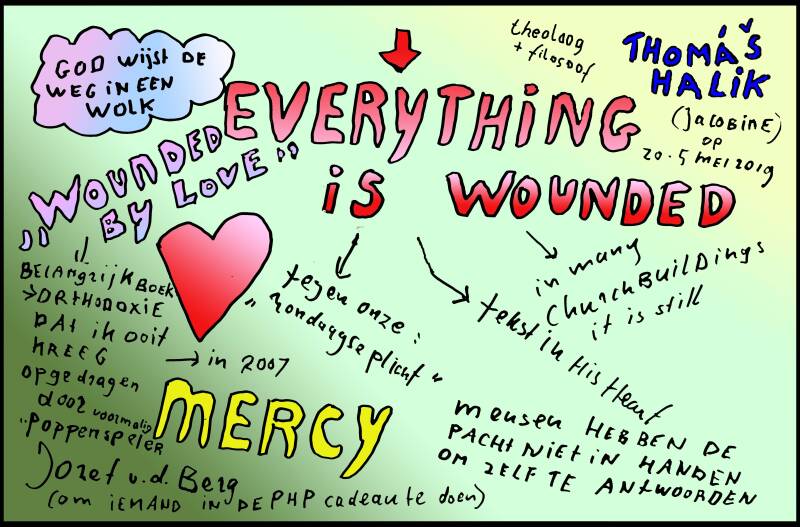 GOD wijst DE
WEG IN EEN
WOLK
theoloog
+ filosoof
THOMÁŠ
HALIK
(JACOBINE)
op
20.5 MEI 2019
EVERYTHING
is WOUNDED
„WOUNDED
BY LOVE”
BELANGRIJK BOEK
>ORTHODOXIE
DAT ik ooit
KREEG
→ in 2007
opgedragen
door voormalig
"poppenspeler
Jozef v.d. Berg
(om IEMAND IN DE PHP cadeau te doen)
tegen onze:
" zondaagse plicht "
tekst in His Heart
in many
CHURCHBUILDINGS
it is still
MERCY
mensen HEBBEN DE
PACHT NIET IN HANDEN
OM ZELF TE ANTWOORDEN